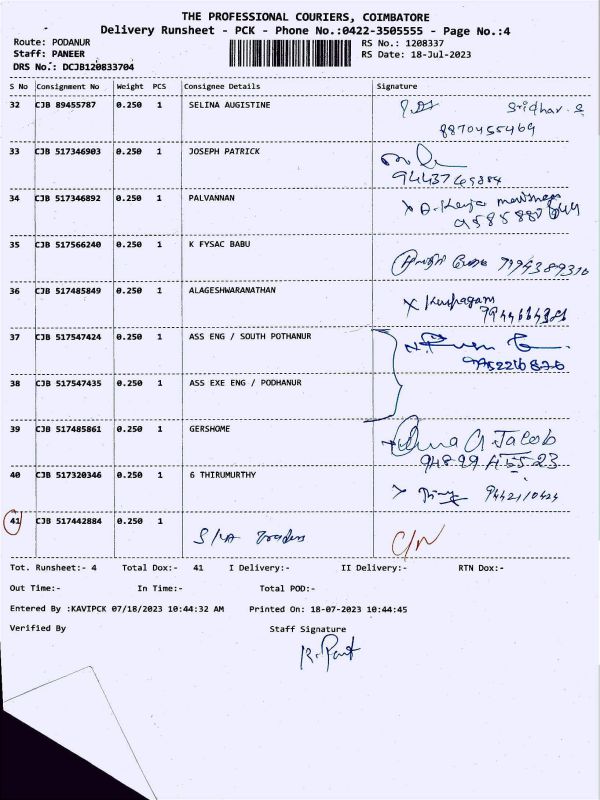 THE PROFESSIONAL COURIERS, COIMBATORE
Delivery Runsheet - PCK - Phone No.:0422-3505555 - Page No.:4
Route: PODANUR
RS No.: 1208337
Staff: PANEER
RS Date: 18-Jul-2023
DRS No.: DCJB120833704
S No Consignment No Weight PCS Consignee Details Signature
32 CJB 89455787 0.250 1 SELINA AUGISTINE Sridhar. S
8870455469
33 CJB 517346903 0.250 1 JOSEPH PATRICK
34 CJB 517346892 0.250 1 PALVANNAN
35 CJB 517566240 0.250 1 K FYSAC BABU
36 CJB 517485849 0.250 1 ALAGESHWARANATHAN
37 CJB 517547424 0.250 1 ASS ENG / SOUTH POTHANUR
38 CJB 517547435 0.250 1 ASS EXE ENG / PODHANUR
39 CJB 517485861 0.250 1 GERSHOME Jacob
94899 45523
40 CJB 517320346 0.250 1 6 THIRUMURTHY 9442110424
41 CJB 517442884 0.250 1 Traders C/N
Tot. Runsheet:- 4 Total Dox:- 41 I Delivery:- II Delivery:- RTN Dox:-
Out Time:- In Time:- Total POD:-
Entered By :KAVIPCK 07/18/2023 10:44:32 AM Printed On: 18-07-2023 10:44:45
Verified By Staff Signature